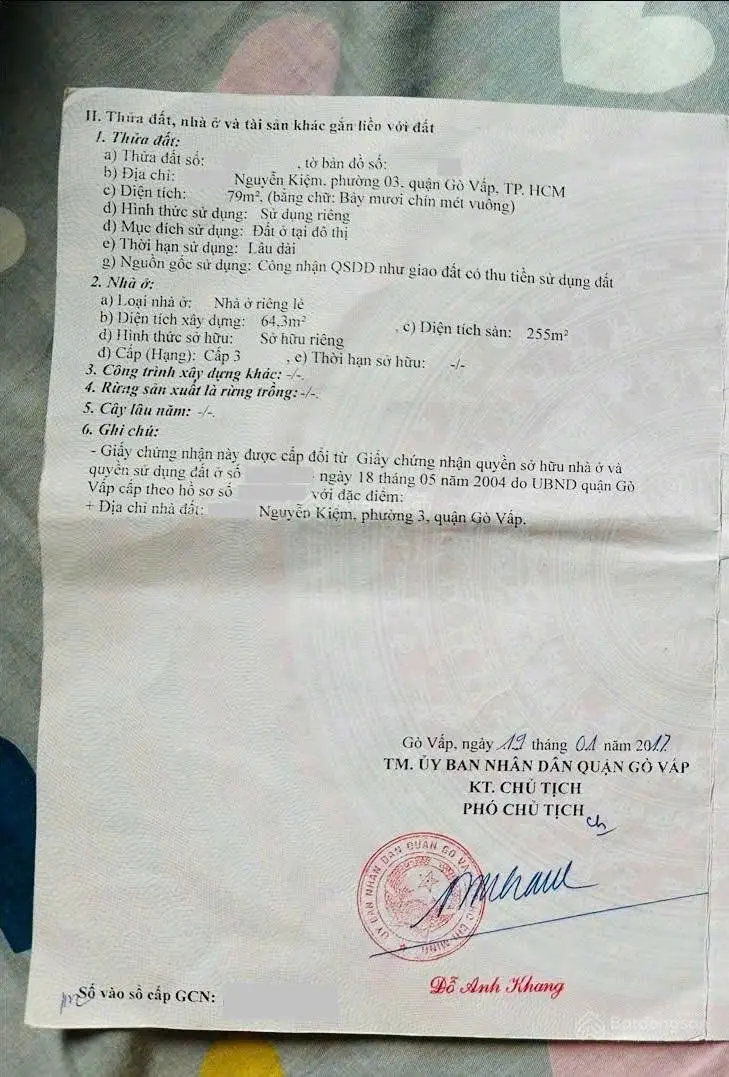 II. Thửa đất, nhà ở và tài sản khác gắn liền với đất
1. Thửa đất:
a) Thửa đất số: , tờ bản đồ số:
b) Địa chỉ: Nguyễn Kiệm, phường 03, quận Gò Vấp, TP. HCM
c) Diện tích: 79m², (bằng chữ: Bảy mươi chín mét vuông)
d) Hình thức sử dụng: Sử dụng riêng
đ) Mục đích sử dụng: Đất ở tại đô thị
e) Thời hạn sử dụng: Lâu dài
g) Nguồn gốc sử dụng: Công nhận QSDĐ như giao đất có thu tiền sử dụng đất
2. Nhà ở:
a) Loại nhà ở: Nhà ở riêng lẻ
b) Diện tích xây dựng: 64,3m² , c) Diện tích sàn: 255m²
d) Hình thức sở hữu: Sở hữu riêng
đ) Cấp (Hạng): Cấp 3 , e) Thời hạn sở hữu: -/-
3. Công trình xây dựng khác: -/-.
4. Rừng sản xuất là rừng trồng: -/-.
5. Cây lâu năm: -/-.
6. Ghi chú:
- Giấy chứng nhận này được cấp đổi từ Giấy chứng nhận quyền sở hữu nhà ở và
quyền sử dụng đất ở số ngày 18 tháng 05 năm 2004 do UBND quận Gò
Vấp cấp theo hồ sơ số với đặc điểm:
+ Địa chỉ nhà đất: Nguyễn Kiệm, phường 3, quận Gò Vấp.
Gò Vấp, ngày 19 tháng 01 năm 2017
TM. ỦY BAN NHÂN DÂN QUẬN GÒ VẤP
KT. CHỦ TỊCH
PHÓ CHỦ TỊCH
ỦY BAN NHÂN DÂN QUẬN GÒ VẤP
Đỗ Anh Khang
Số vào sổ cấp GCN:
Batdongsan